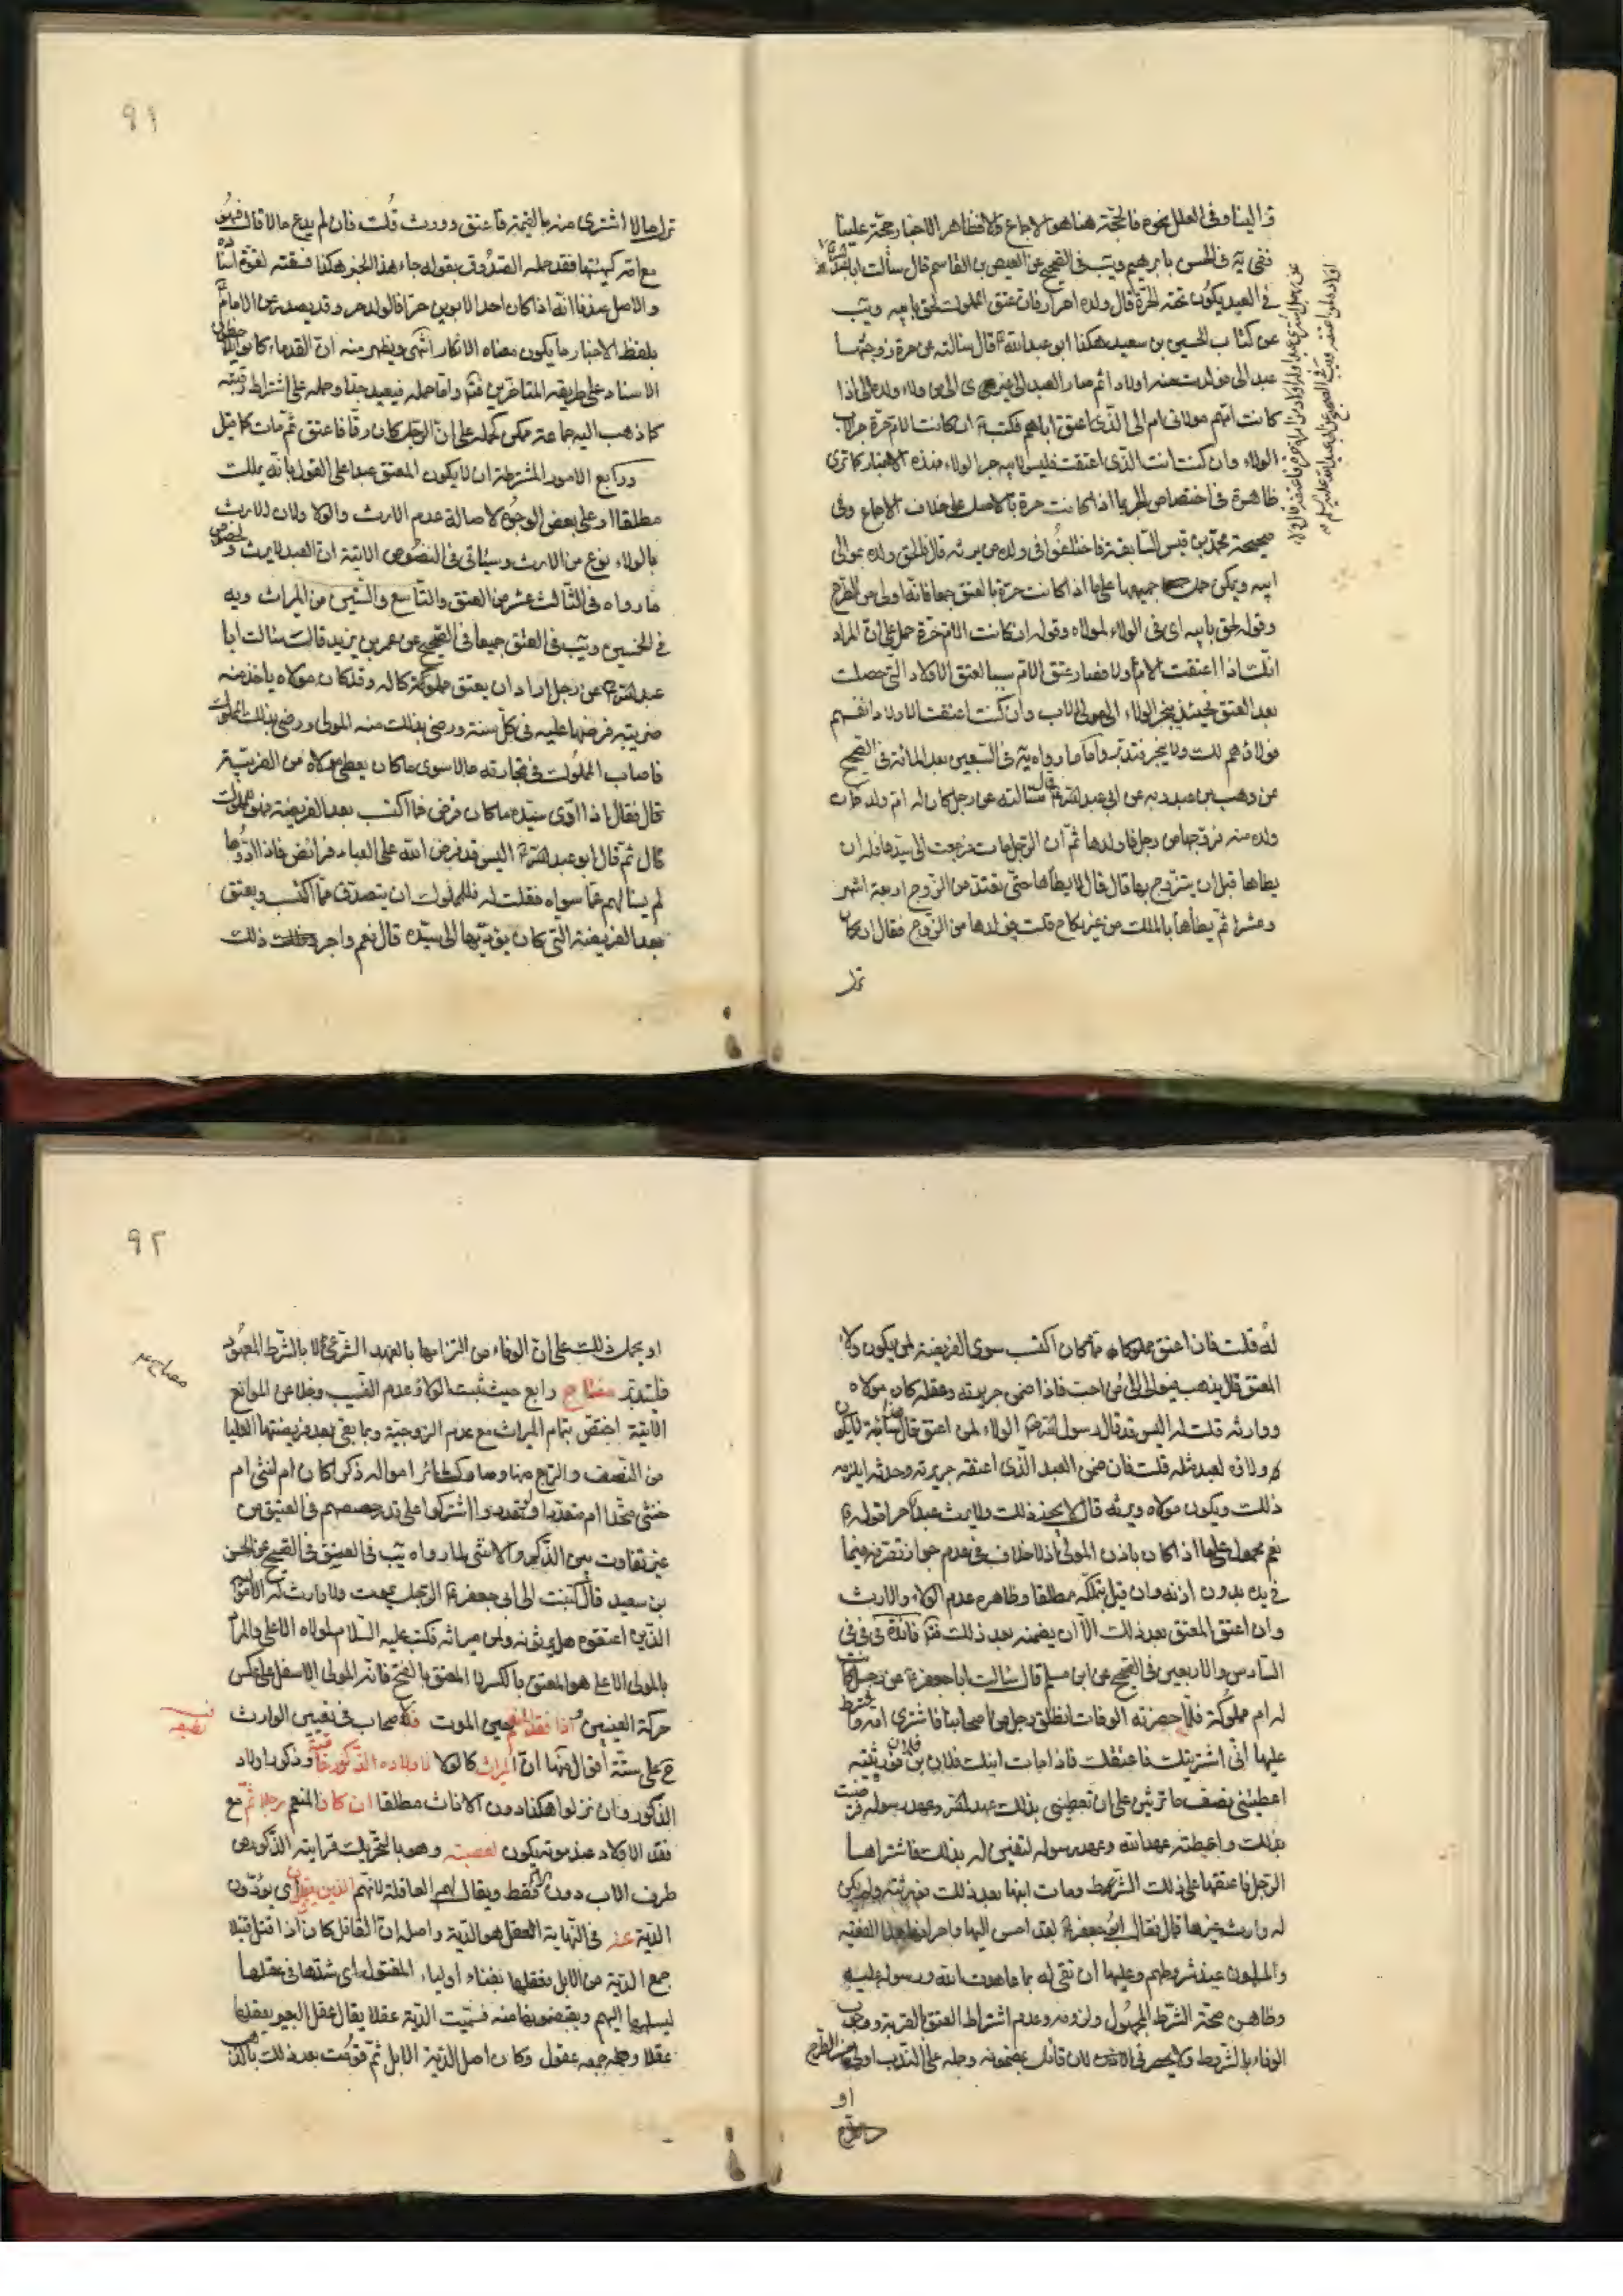 والينا وفى العلل نحوه فالحجّة هنا هو الاجماع والا فظاهر الاخبار حجّة علينا
ففى يه فى الحسن بابرهيم ويب فى الصحيح عن العيص بن القاسم قال سألت ابا عبدالله
فى العبد يكون تحته الحرّة قال ولده احرار فان عتق المملوك لحق بابيه ويب
عن كتاب الحسين بن سعيد هكذا ابو عبدالله قال سالته عن حرة زوجتها
عبدا لى فولدت منه اولادا ثم صار العبد الى غيرى الى من ولاء ولده الى اذا
كانت امّهم مولاتى ام الى الّذى اعتق اباهم فكتب ان كانت الامّ حرّة جر الاب
الولاء وان كنت انت الّذى اعتقت فليس لابيه جر الولاء فهذه الاخبار كما ترى
ظاهرة فى اختصاص الجر بما اذا كانت حرة بالاصل على خلاف الاجماع وفى
صحيحة محمّد بن قيس السّابقة فاختلفوا فى ولده من يرثه قال فالحق ولده بموالى
ابيه ويمكن حمل جميعها على ما اذا كانت حرّة بالعتق جمعا فانّه اولى من الطرح
وقوله لحق بابيه اى فى الولاء لمولاه وقوله ان كانت الامّ حرّة حمل على انّ المراد
انّك اذا اعتقت الامّ اولا فصار عتق الامّ سببا لعتق الاولاد التى حصلت
بعد العتق فحينئذ ينجر الولاء الى مولى الاب وان كنت اعتقت الاولاد انفسهم
فولاؤهم لك ولا ينجر فتدبّر وامّا ما رواه يه فى التسعين بعد المائة فى الصحيح
عن وهب بن عبد ربه عن ابى عبدالله قال سالته عن رجل كان له ام ولد فمات
ولده منه فزوجها من رجل فاولدها ثمّ ان الرّجل مات فرجعت الى سيّدها فله ان
يطاها قبل ان يتزّوج بها قال قال لا يطأها حتّى تعتد من الزّوج اربعة اشهر
وعشرا ثمّ يطأها بالملك من غير نكاح قلت فولدها من الزّوج فقال ان كان
ترك
٩١
ترك مالا اشترى منه بالقيمة فاعتق وورث قلت فان لم يدع مالا قال فهو
مع امّه كهيئتها فقد حمله الصّدوق بقوله جاء هذا الخبر هكذا فسقته لقوّة اسناده
والاصل عندنا انّه اذا كان احد الابوين حرّا فالولد حر وقد يصدر عن الامام
بلفظ الاخبار ما يكون معناه الانكار انتهى ويظهر منه انّ القدماء كانوا
الاسناد على طريقه المتاخرين وامّا حمله فبعيد جدّا وحمله على اشتراط رقيّته
كما ذهب اليه جماعة ممكن كحمله على انّ الرجل كان رقّا فاعتق ثمّ مات كما قيل
ورابع الامور المشترطة ان لا يكون المعتق عبدا على القول بانّه يملك
مطلقا او على بعض الوجوه لاصالة عدم الارث والولاء ولان الارث
بالولاء نوع من الارث وسياتى فى النّصوص الاتية انّ العبد لا يرث وخصوص
ما رواه فى الثّالث عشر من العتق والتّاسع والسّتين من الميراث ويه
فى الخمسين ويب فى العتق جميعا فى الصّحيح عن عمر بن يزيد قال سالت ابا
عبدالله عن رجل اراد ان يعتق مملوكا له وقد كان مولاه ياخذ منه
ضريبة فرضها عليه فى كلّ سنة ورضى بذلك منه المولى ورضى بذلك المملوك
فاصاب المملوك فى تجارته مالا سوى ما كان يعطى مولاه من الضريبة
قال فقال اذا ادّى سيّده ما كان فرض فما اكتسب بعد الفريضة فهو للمملوك
قال ثمّ قال ابو عبدالله اليس قد فرض الله على العباد فرائض فاذا ادّوها
لم يسالهم عمّا سواه فقلت له فللمملوك ان يتصدّق ممّا اكتسب ويعتق
بعد الفريضة التى كان يؤدّيها الى سيّده قال نعم واجر ذلك
له قلت فان اعتق مملوكا ممّا كان اكتسب سوى الفريضة لمن يكون ولاء
المعتق قال يذهب فيوالى الى من احب فاذا ضمن جريرته وعقله كان مولاه
وورثه قلت له اليس قد قال رسول الله الولاء لمن اعتق قال سائبة لا يكون
ولاؤه لعبد مثله قلت فان ضمن العبد الّذى اعتقه جريرته وحدثه ايلزمه
ذلك ويكون مولاه ويرثه قال لا يجوز ذلك ولا يرث عبد حرا قوله
نعم محمول على ما اذا كان باذن المولى اذ لا خلاف فى عدم جواز تصّرفه فيما
فى يده بدون اذنه وان قيل بتملكه مطلقا وظاهره عدم الولاء والارث
وان اعتق المعتق بعد ذلك الّا ان يضمنه بعد ذلك فائدة فى
السّادس والاربعين فى الصّحيح عن ابن مسلم قال سالت ابا جعفر عن رجل كانت
له ام مملوكة فلمّا حضرته الوفات انطلق رجل من اصحابنا فاشترى امه واشترط
عليها انّى اشتريك فاعتقك فاذا مات ابنك فلان بن فلان فورثته
اعطيتنى نصف ما ترثين على ان تعطينى بذلك عهد الله وعهد رسوله فرضيت
بذلك واعطته عهد الله وعهد رسوله لتفين له بذلك فاشتراها
الرّجل فاعتقها على ذلك الشّرط ومات ابنها بعد ذلك فورثته ولم يكن
له وارث غيرها قال فقال ابو جعفر لقد احسن اليها واجر ان هذا لفقيه
والمسلمون عند شروطهم وعليها ان تفى له بما عاهدت الله ورسوله عليه
وظاهره صحّة الشّرط المجهول ولزومه وعدم اشتراط العتق بالقربة ووجوب
الوفاء بالشّرط ولا يحضرنى الآن قائل بمضمونه وحمله على النّدب اولى من الطرح
او
٩٢
او يحمل ذلك على انّ الوفاء من التزامها بالعهد الشّرعى لا بالشّرط المعهود
فليتدبّر مفتاح رابع حيث ثبت الولاء وعدم النّسب وخلا عن الموانع
الآتية اختصّ بتمام الميراث مع عدم الزوجيّة وبما بقى بعد فريضتها العليا
من النّصف والرّبع منها وصار كسائر امواله ذكرا كان ام انثى ام
خنثى متّحدا ام متعدّدا ولو تعدّدوا اشتركوا على قدر حصصهم فى العتيق من
غير تفاوت بين الذّكر والانثى لما رواه يب فى العتق فى الصّحيح عن الحسن
بن سعيد قال كتبت الى ابى جعفر الرّجل يموت ولا وارث له الّا مواليه
الّذين اعتقوه هل يرثونه ولمن ميراثه فكتب عليه السّلام لمولاه الاعلى والمراد
بالمولى الاعلى هو المعتق بالكسر لا المعتق بالفتح فانّه المولى الاسفل على عكس
حركة العينين واذا فقد المنعم حين الموت فللاصحاب فى تعيين الوارث
ح على ستّة اقوال منها انّ الميراث كالولاء لاولاده الذّكور خاصّة وذكور اولاد
الذّكور وان نزلوا هكذا دون الاناث مطلقا ان كان المنعم رجلا ثمّ مع
فقد الاولاد عند موته يكون لعصبته وهو بالتّحريك قرابته الذّكور من
طرف الاب دون الامّ فقط ويقال لهم العاقلة لانّهم الّذين يعقلون اى يؤدّون
الدّية عنه فى النّهاية العقل هو الدّية واصله انّ القاتل كان اذا قتل قتيلا
جمع الدّية من الابل فعقلها بفناء اولياء المقتول اى شدّها فى عقلها
ليسلمها اليهم ويقبضونها منه فسمّيت الدّية عقلا يقال عقل البعير يعقله
عقلا وجمعه عقول وكان اصل الدّية الابل ثمّ قوّمت بعد ذلك بالذهب